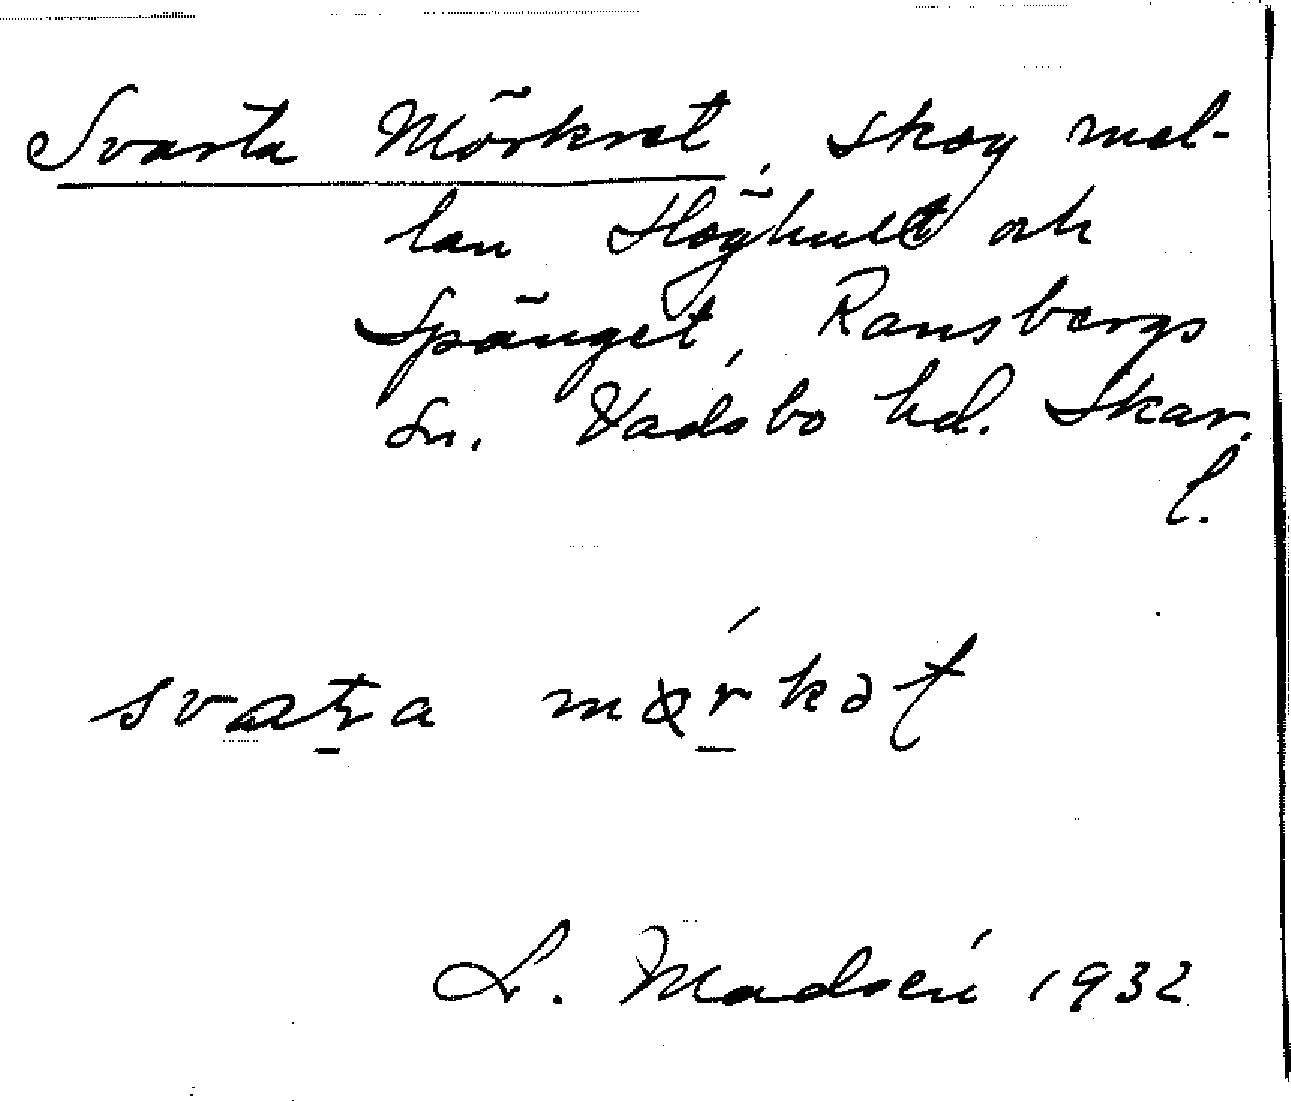 Svarta Mörkret, skog mel-
lan Höghult och
Spänget, Ransbergs
sn. Vadsbo hd. Skar.
l.
L. Madsén 1932